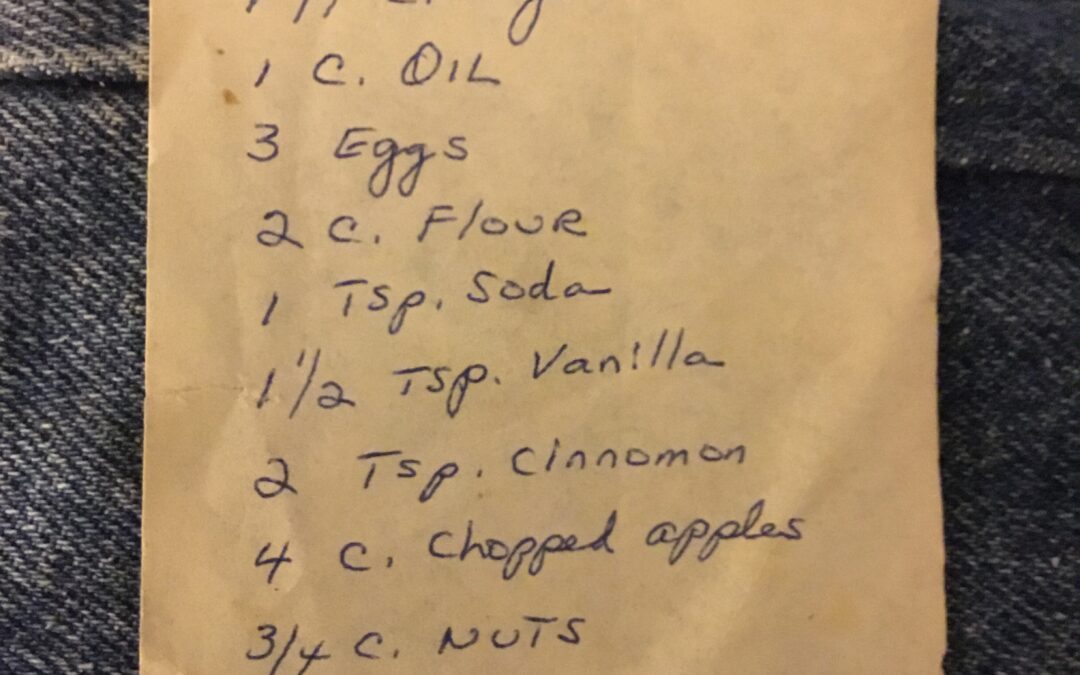 1 C. OIL
3 Eggs
2 C. Flour
1 Tsp. Soda
1 1/2 Tsp. Vanilla
2 Tsp. Cinnomon
4 C. Chopped apples
3/4 C. NUTS